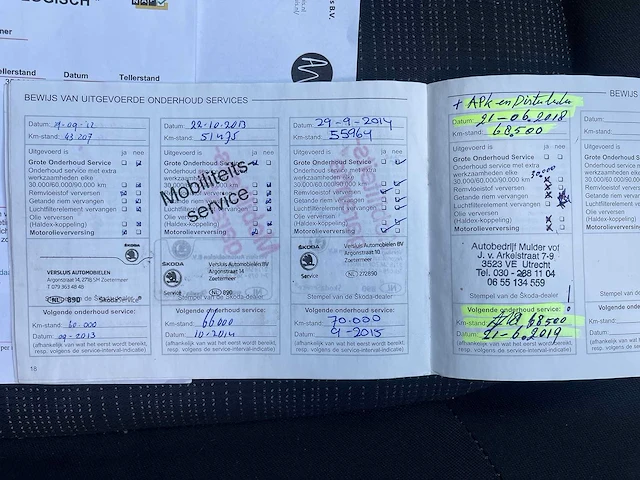 LOGISCH"
Tellerstand
Datum
Tellerstand
s B.V.
BEWIJS VAN UITGEVOERDE ONDERHOUD SERVICES
Datum:
Km-stand: 43 207
Uitgevoerd is ja nee
Grote Onderhoud Service
Onderhoud service met extra
werkzaamheden elke
30.000/60.000/90.000 km
Remvloeistof verversen
Getande riem vervangen
Luchtfilterelement vervangen
Olie verversen
(Haldex-koppeling)
Motorolieverversing
ŠKODA
Service
VERSLUIS AUTOMOBIELEN
Argonstraat 14, 2718 SM Zoetermeer
T 079 363 48 48
NL 890
Stempel van de Škoda-dealer
Volgende onderhoud service:
Km-stand: 60.000
Datum: 09-2013
(afhankelijk van wat het eerst wordt bereikt,
resp. volgens de service-interval-indicatie)
18
Datum: 22-10-2013
Km-stand: 51475
Uitgevoerd is ja nee
Grote Onderhoud Service
Onderhoud service met extra
werkzaamheden elke
30.000/60.000/90.000 km
Remvloeistof verversen
Getande riem vervangen
Luchtfilterelement vervangen
Olie verversen
(Haldex-koppeling)
Motorolieverversing
Mobiliteits
service
ŠKODA
Service
Versluis Automobielen BV
Argonstraat 14
Zoetermeer
NL 890
Stempel van de Škoda-dealer
Volgende onderhoud service:
Km-stand: 60.000
Datum: 10-2014
(afhankelijk van wat het eerst wordt bereikt,
resp. volgens de service-interval-indicatie)
Datum: 29-9-2014
Km-stand: 55964
Uitgevoerd is ja nee
Grote Onderhoud Service
Onderhoud service met extra
werkzaamheden elke
30.000/60.000/90.000 km
Remvloeistof verversen
Getande riem vervangen
Luchtfilterelement vervangen
Olie verversen
(Haldex-koppeling)
Motorolieverversing
ŠKODA
Service
Versluis Automobielen BV
Zoetermeer
NL 272890
Stempel van de Škoda-dealer
Volgende onderhoud service:
Km-stand: 70.000
Datum: 9-2015
(afhankelijk van wat het eerst wordt bereikt,
resp. volgens de service-interval-indicatie)
+ APK en
Datum: 21-06.2018
Km-stand: 68,500
Uitgevoerd is ja nee
Grote Onderhoud Service
Onderhoud service met extra
werkzaamheden elke 30,000
30.000/60.000/90.000 km
Remvloeistof verversen
Getande riem vervangen
Luchtfilterelement vervangen
Olie verversen
(Haldex-koppeling)
Motorolieverversing
Autobedrijf Mulder vof
J. v. Arkelstraat 7-9
3523 VE Utrecht
Tel. 030 - 288 11 04
06 55 134 559
Stempel van de Škoda-dealer
Volgende onderhoud service:
Km-stand: 68500
Datum: 21-6.2019
(afhankelijk van wat het eerst wordt bereikt,
resp. volgens de service-interval-indicatie)
BEWIJS
Datum:
Km-stand:
Uitgevoerd is
Grote Onderhoud
Onderhoud
werkzaamheden
30.000/60.000
Remvloeistof
Getande riem
Luchtfilterelement
Olie verversen
(Haldex-koppeling)
Motorolie
Stempel
Volgende
Km-stand:
Datum:
(afhankelijk
resp. volgens